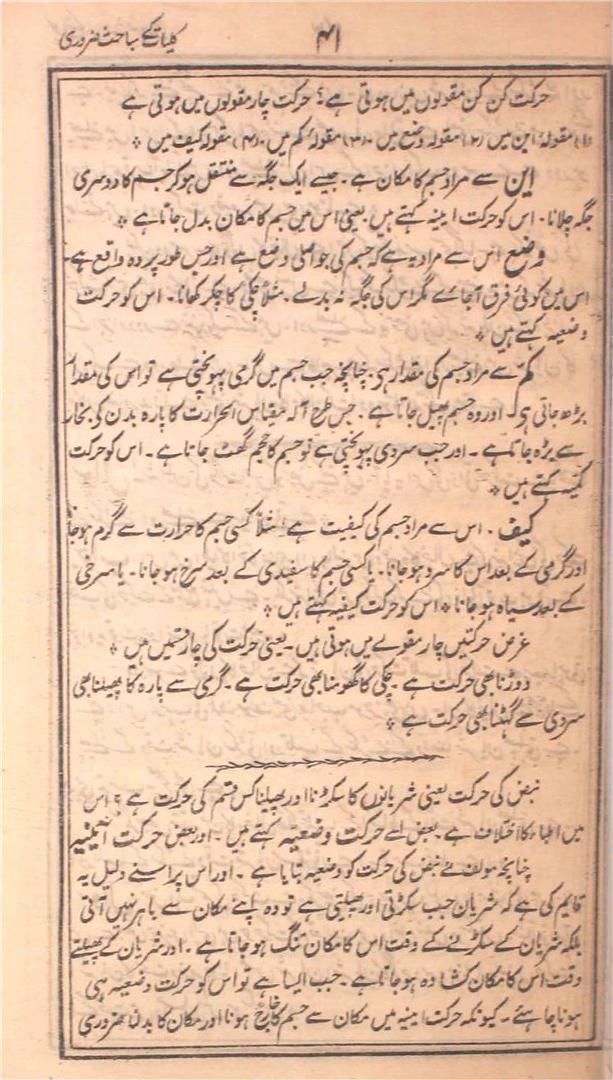 کلیات کے مباحث ضروری
۴۱
حرکت کن کن مقولوں میں ہوتی ہے؟ حرکت چار مقولوں میں ہوتی ہے
(۱) مقولۂ این میں (۲) مقولہ وضع میں۔ (۳) مقولۂ کم میں۔ (۴) مقولہ کیف میں *
این سے مراد جسم کا مکان ہے۔ جیسے ایک جگہ سے منتقل ہو کر جسم کا دوسری
جگہ چلانا۔ اس کو حرکت اینیہ کہتے ہیں۔ یعنی اس میں جسم کا مکان بدل جاتا ہے *
وضع اس سے مراد یہ ہے کہ جسم کی جو اصلی وضع ہے اور جس طور پر وہ واقع ہے۔
اس میں کوئی فرق آجائے مگر اس کی جگہ نہ بدلے۔ مثلاً چکی کا چکر کھانا۔ اس کو حرکت
وضعیہ کہتے ہیں *
کم سے مراد جسم کی مقدار ہی۔ چنانچہ جب جسم میں گرمی پہونچتی ہے تو اس کی مقدار
بڑھ جاتی ہی۔ اور وہ جسم پھیل جاتا ہے۔ جس طرح آلہ مقیاس الحرارت کا پارہ بدن کی بخار
سے بڑہ جاتا ہے۔ اور جب سردی پہونچتی ہے تو جسم کا حجم گھٹ جاتا ہے۔ اس کو حرکت
کمیّہ کہتے ہیں *
کیف۔ اس سے مراد جسم کی کیفیت ہے۔ مثلاً کسی جسم کا حرارت سے گرم ہو جانا
اور گرمی کے بعد اس کا سرد ہو جانا۔ یا کسی جسم کا سفیدی کے بعد سرخ ہو جانا۔ یا سرخی
کے بعد سیاہ ہو جانا * اس کو حرکت کیفیہ کہتے ہیں *
غرض حرکتیں چار مقولے میں ہوتی ہیں۔ یعنی حرکت کی چار قسمیں ہیں *
دوڑنا بھی حرکت ہے۔ چکی کا گھومنا بھی حرکت ہے۔ گرمی سے پارہ کا پھیلنا بھی
سردی سے گہٹنا بھی حرکت ہے *
نبض کی حرکت یعنی شریانوں کا سکڑنا اور پھیلنا کس قسم کی حرکت ہے؟ اس
میں اطباء کا اختلاف ہے۔ بعض اسے حرکت وضعیہ کہتے ہیں۔ اور بعض حرکت اَینیہ
چنانچہ مولف نے نبض کی حرکت کو وضعیہ بتایا ہے۔ اور اس پر اسنے دلیل یہ
قایم کی ہے کہ شریان جب سکڑتی اور پھیلتی ہے تو وہ اپنے مکان سے باہر نہیں آتی
بلکہ شریان کے سکڑنے کے وقت اس کا مکان تنگ ہو جاتا ہے۔ اور شریان کے پھیلتے
وقت اس کا مکان کشادہ ہو جاتا ہے۔ جب ایسا ہے تو اس کو حرکت وضعیہ ہی
ہونا چاہئے۔ کیونکہ حرکت اینیہ میں مکان سے جسم کا خارج ہونا اور مکان کا بدلنا ضروری